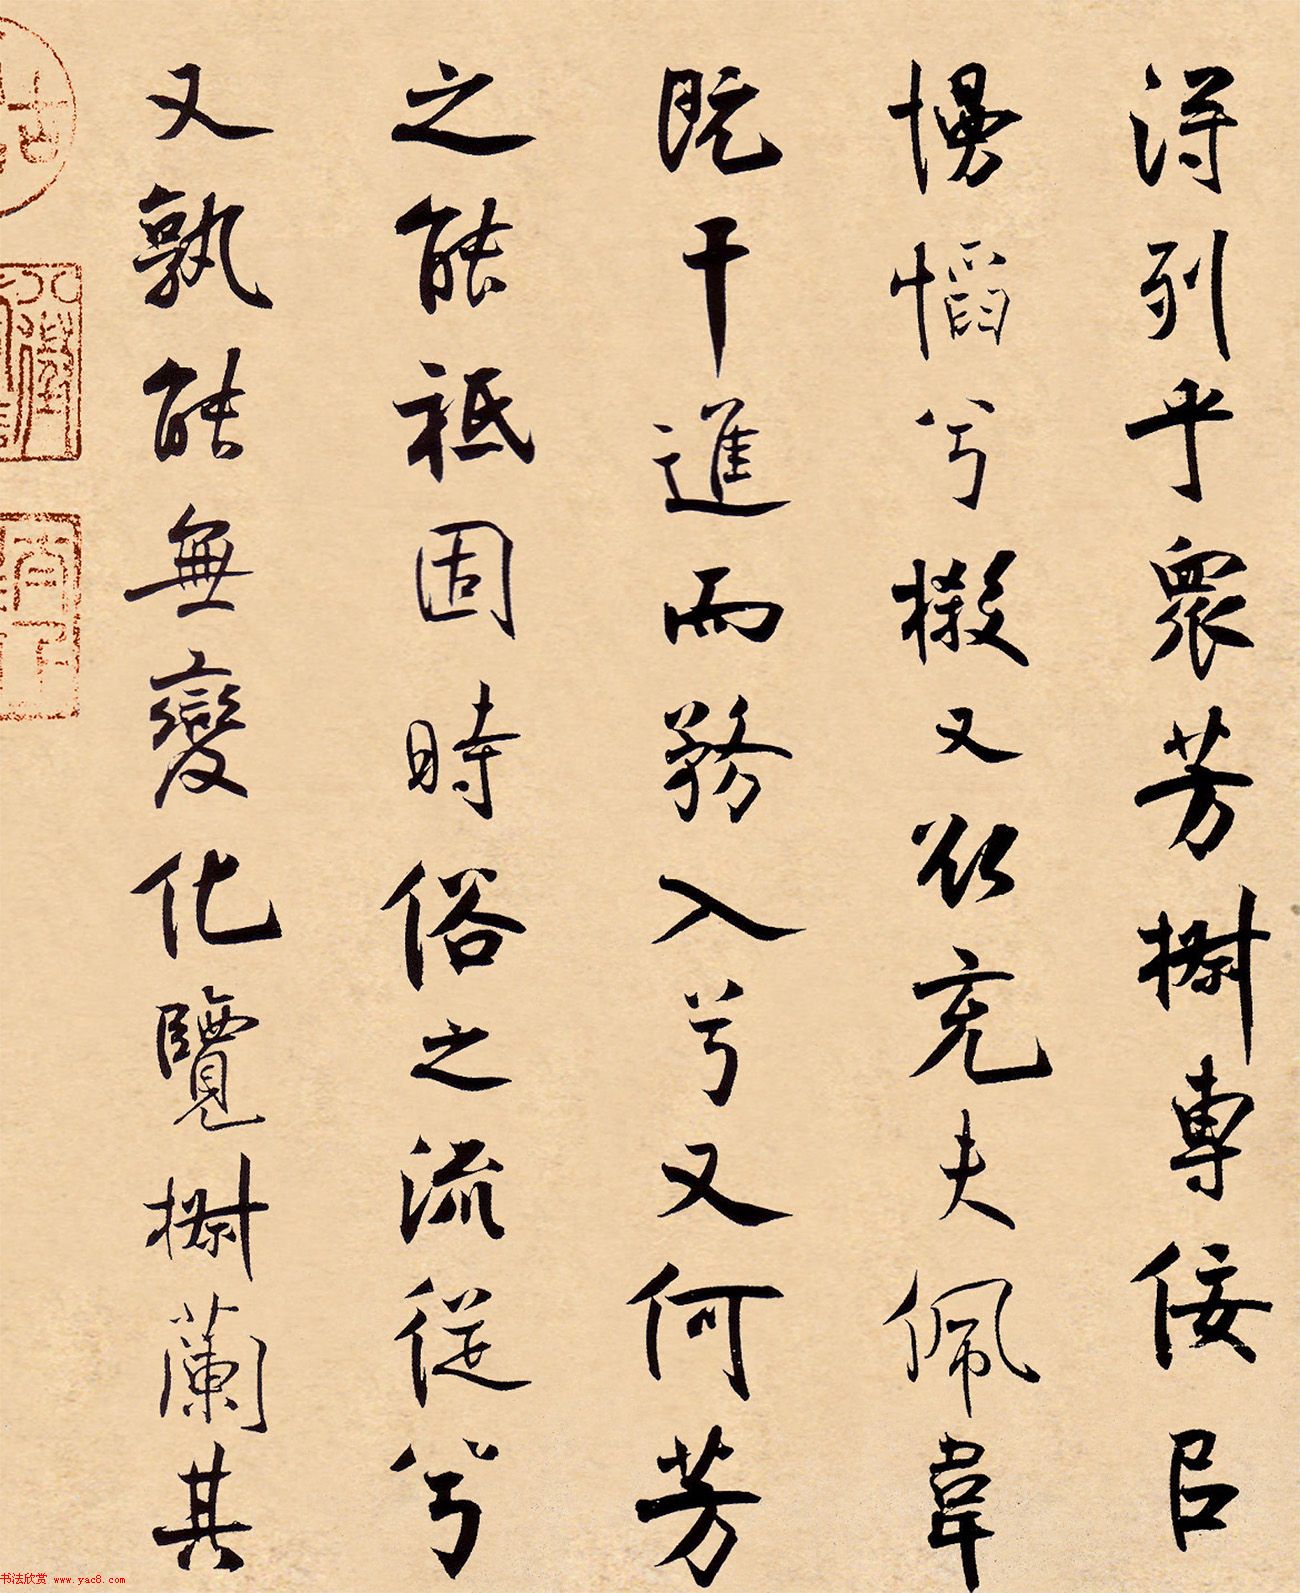 得列乎眾芳椒專佞㠯
慢慆兮樧又欲充夫佩韋
既干進而務入兮又何芳
之能祗固時俗之流從兮
又孰能無變化覽椒蘭其
书法欣赏 www.yac8.com